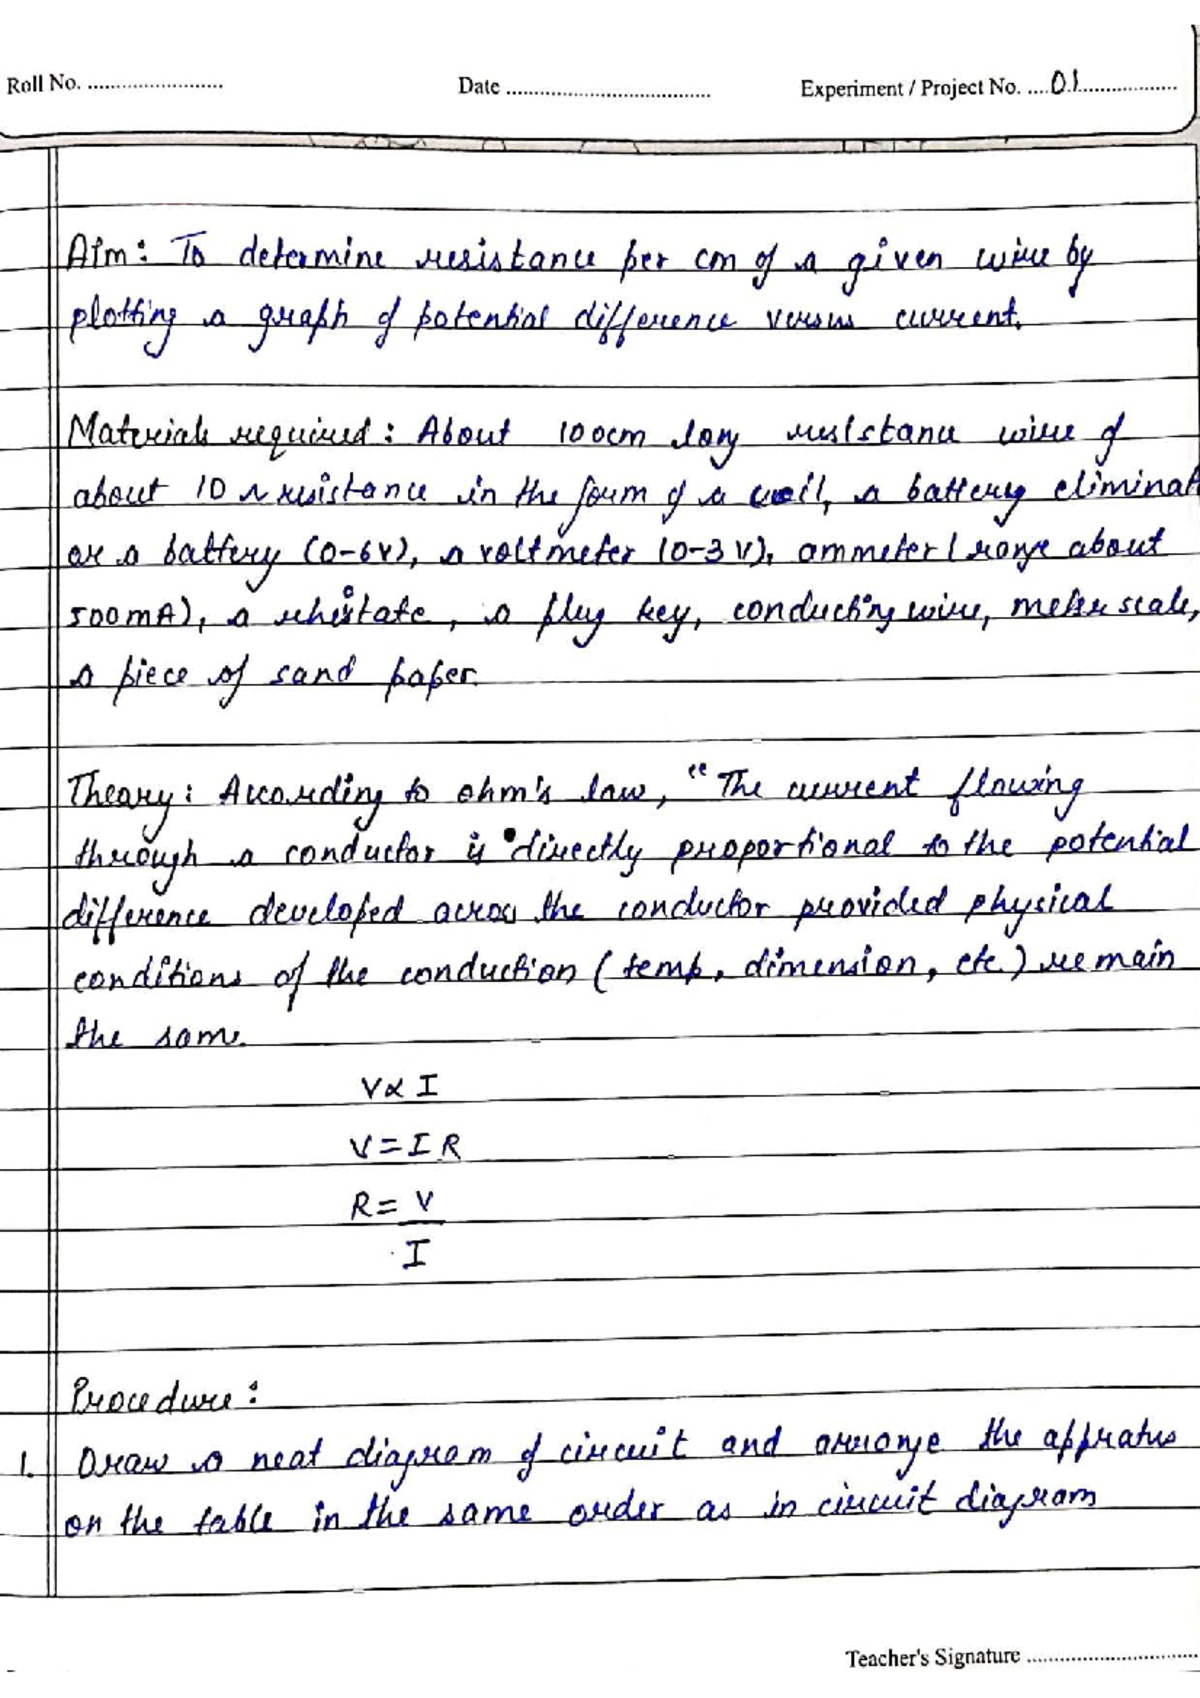 Roll No. ........................
Date ....................................
Experiment / Project No. ....01..................
Aim: To determine resistance per cm of a given wire by
plotting a graph of potential difference versus current.
Materials required: About 100cm long resistance wire of
about 10 Ω resistance in the form of a coil, a battery eliminat
or a battery (0-6V), a voltmeter (0-3V), ammeter (range about
500mA), a rheostate, a plug key, conducting wire, meter scale,
a piece of sand paper.
Theory: According to ohm's law, "The current flowing
through a conductor is directly proportional to the potential
difference developed across the conductor provided physical
conditions of the conduction (temp, dimension, etc.) remain
the same.
V∝ I
V=IR
R= V
I
Procedure:
1. Draw a neat diagram of circuit and arrange the appratus
on the table in the same order as in circuit diagram
Teacher's Signature ..............................